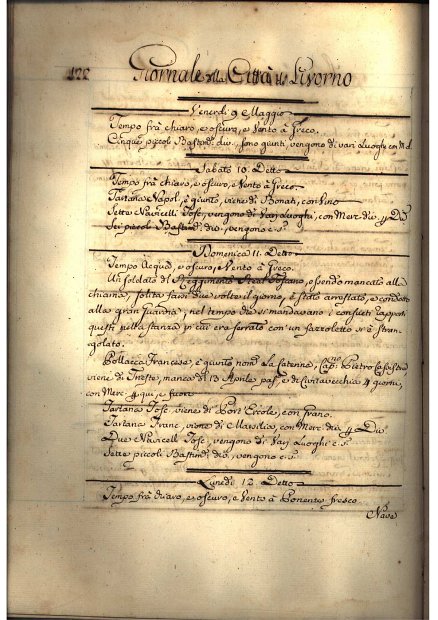 122 Giornale della Città di Livorno
Venerdì 9 Maggio
Tempo frà chiaro, e oscuro, e Vento à Greco.
Cinque piccoli Bastim.ti div. sono giunti, vengono di vari Luoghi con M.d.
Sabato 10. Detto
Tempo frà chiaro, e oscuro, e Vento à Greco.
Tartana Napol. è giunta, viene di Bonati, con Vino
Sette Navicelli Tosc. vengono di Vari Luoghi, con Merc. div. p Div.
Sei piccoli Bastim.ti div. vengono c. s.
Domenica 11. Detto
Tempo Acqua, e oscuro, e Vento à Greco.
Un soldato di Reggimento Real Toscano, essendo mancato alla
chiama, solita farsi due volte il giorno, è stato arrestato, e condotto
alla gran Guardia, nel tempo che si mandavano i consueti rapporti
questi nella stanza p cui era serrato con un fazzoletto si è stran-
golato.
Pollacca Francese, è giunta nom. La Caterina, Cap.no Pietro
viene di Trieste, manca di 13 Aprile pas. e di Civitavecchia 4 giorni,
con Merc. p qui, e fuori
Tartana Tosc. viene di Port Ercole, con grano.
Tartana Franc. viene di Marsilia, con Merc. div. p Div.
Due Navicelli Tosc. vengono di Vari Luoghi c. s.
Sette piccoli Bastim.ti div. vengono c. s.
Lunedì 12 Detto
Tempo frà chiaro, e oscuro, e Vento à Ponente fresco.
Nave